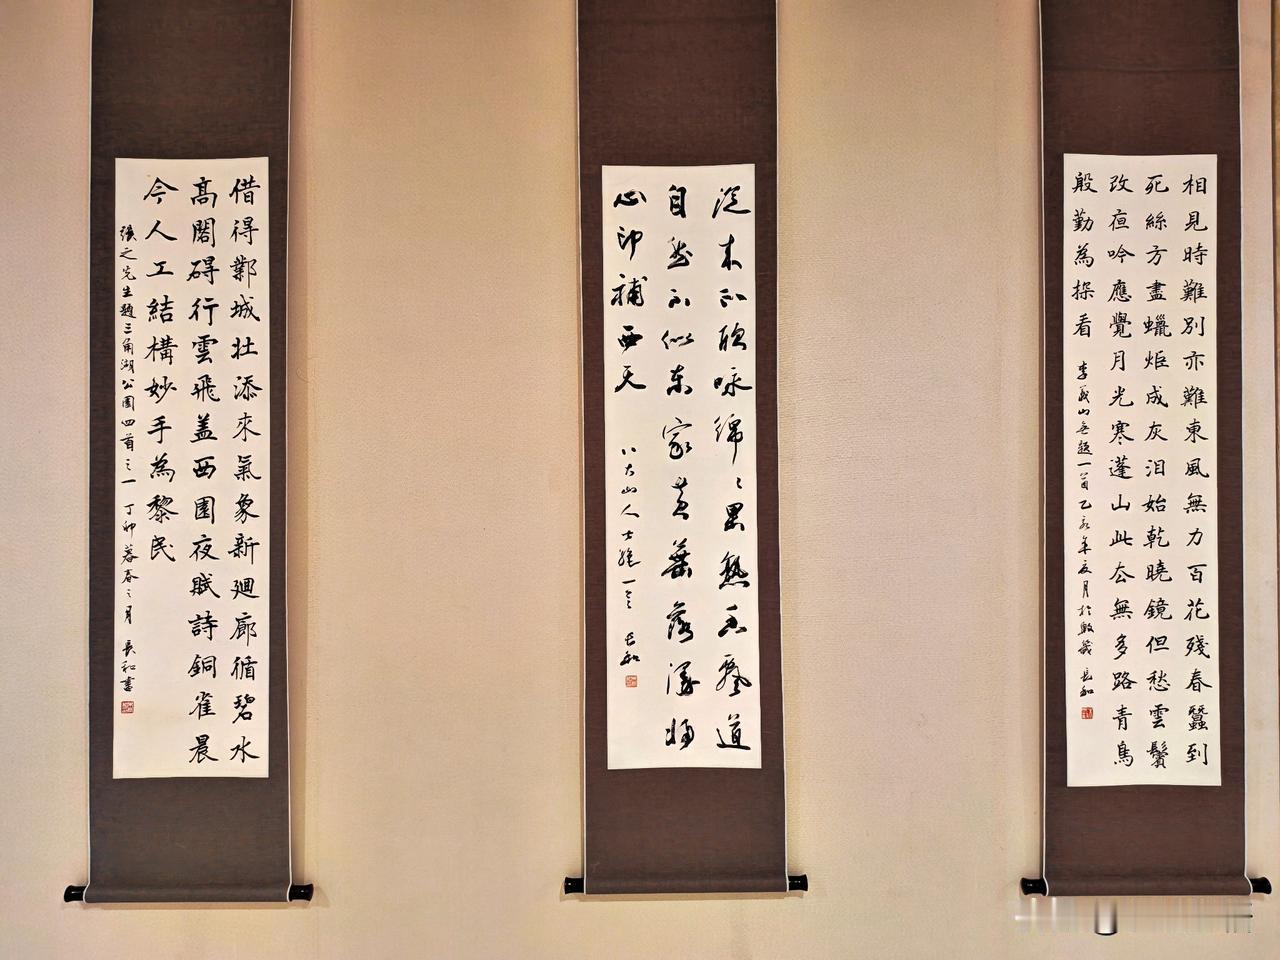 相見時難別亦難東風無力百花殘春蠶到
死絲方盡蠟炬成灰泪始乾曉鏡但愁雲鬢
改夜吟應覺月光寒蓬山此去無多路青鳥
殷勤為探看
李義山無題一首乙亥年亥月於 長和
從來瓜瓞咏綿〻果熟香飄道
自然不似東家黃葉落漫將
心印補西天
八大山人七絕一 長和
借得鄴城壮添來氣象新廻廊循碧水
高閣碍行雲飛盖西園夜賦詩銅雀晨
今人工結構妙手為黎民
張之先生題三角湖公園四首之一 丁卯暮春之月 長和書